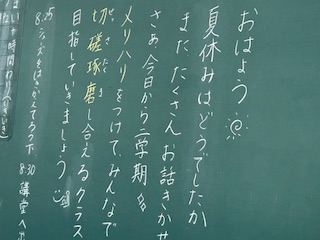 おはよう
夏休みはどうでしたか
またたくさんお話きかせ
さぁ、今日から二学期
メリハリをつけて、みんなで
切磋琢磨し合えるクラス
せっさたくま
目指していきましょう
8:25 シューズをはきかえてろう下
8:30 講堂へ